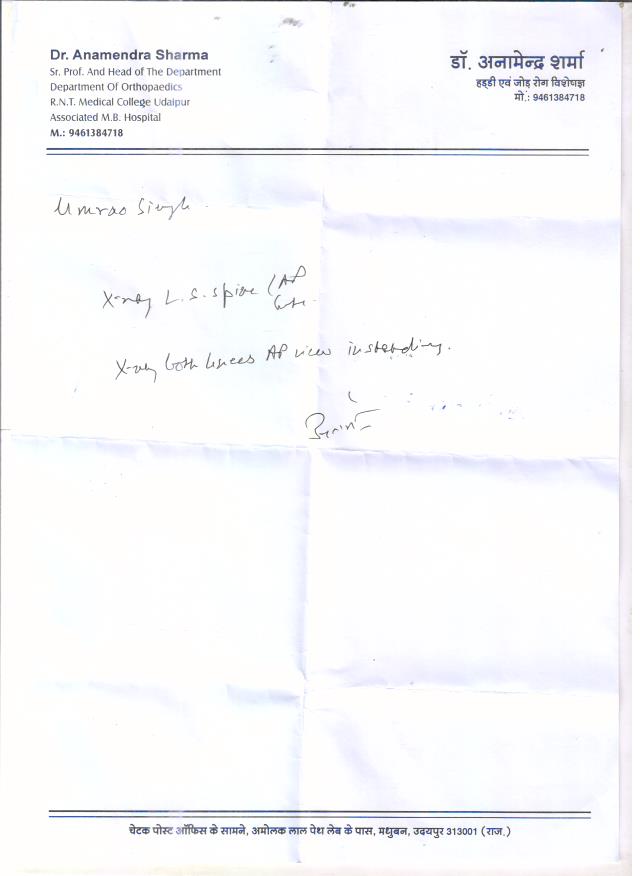 Dr. Anamendra Sharma
Sr. Prof. And Head of The Department
Department Of Orthopaedics
R.N.T. Medical College Udaipur
Associated M.B. Hospital
M.: 9461384718
डॉ. अनामेन्द्र शर्मा
हड्डी एवं जोड़ रोग विशेषज्ञ
मो.: 9461384718
Umrao Singh
X-ray L.S. spine (AP
X-ray both knees AP view in standing.
चेटक पोस्ट ऑफिस के सामने, अमोलक लाल पेथ लेब के पास, मधुबन, उदयपुर 313001 (राज.)